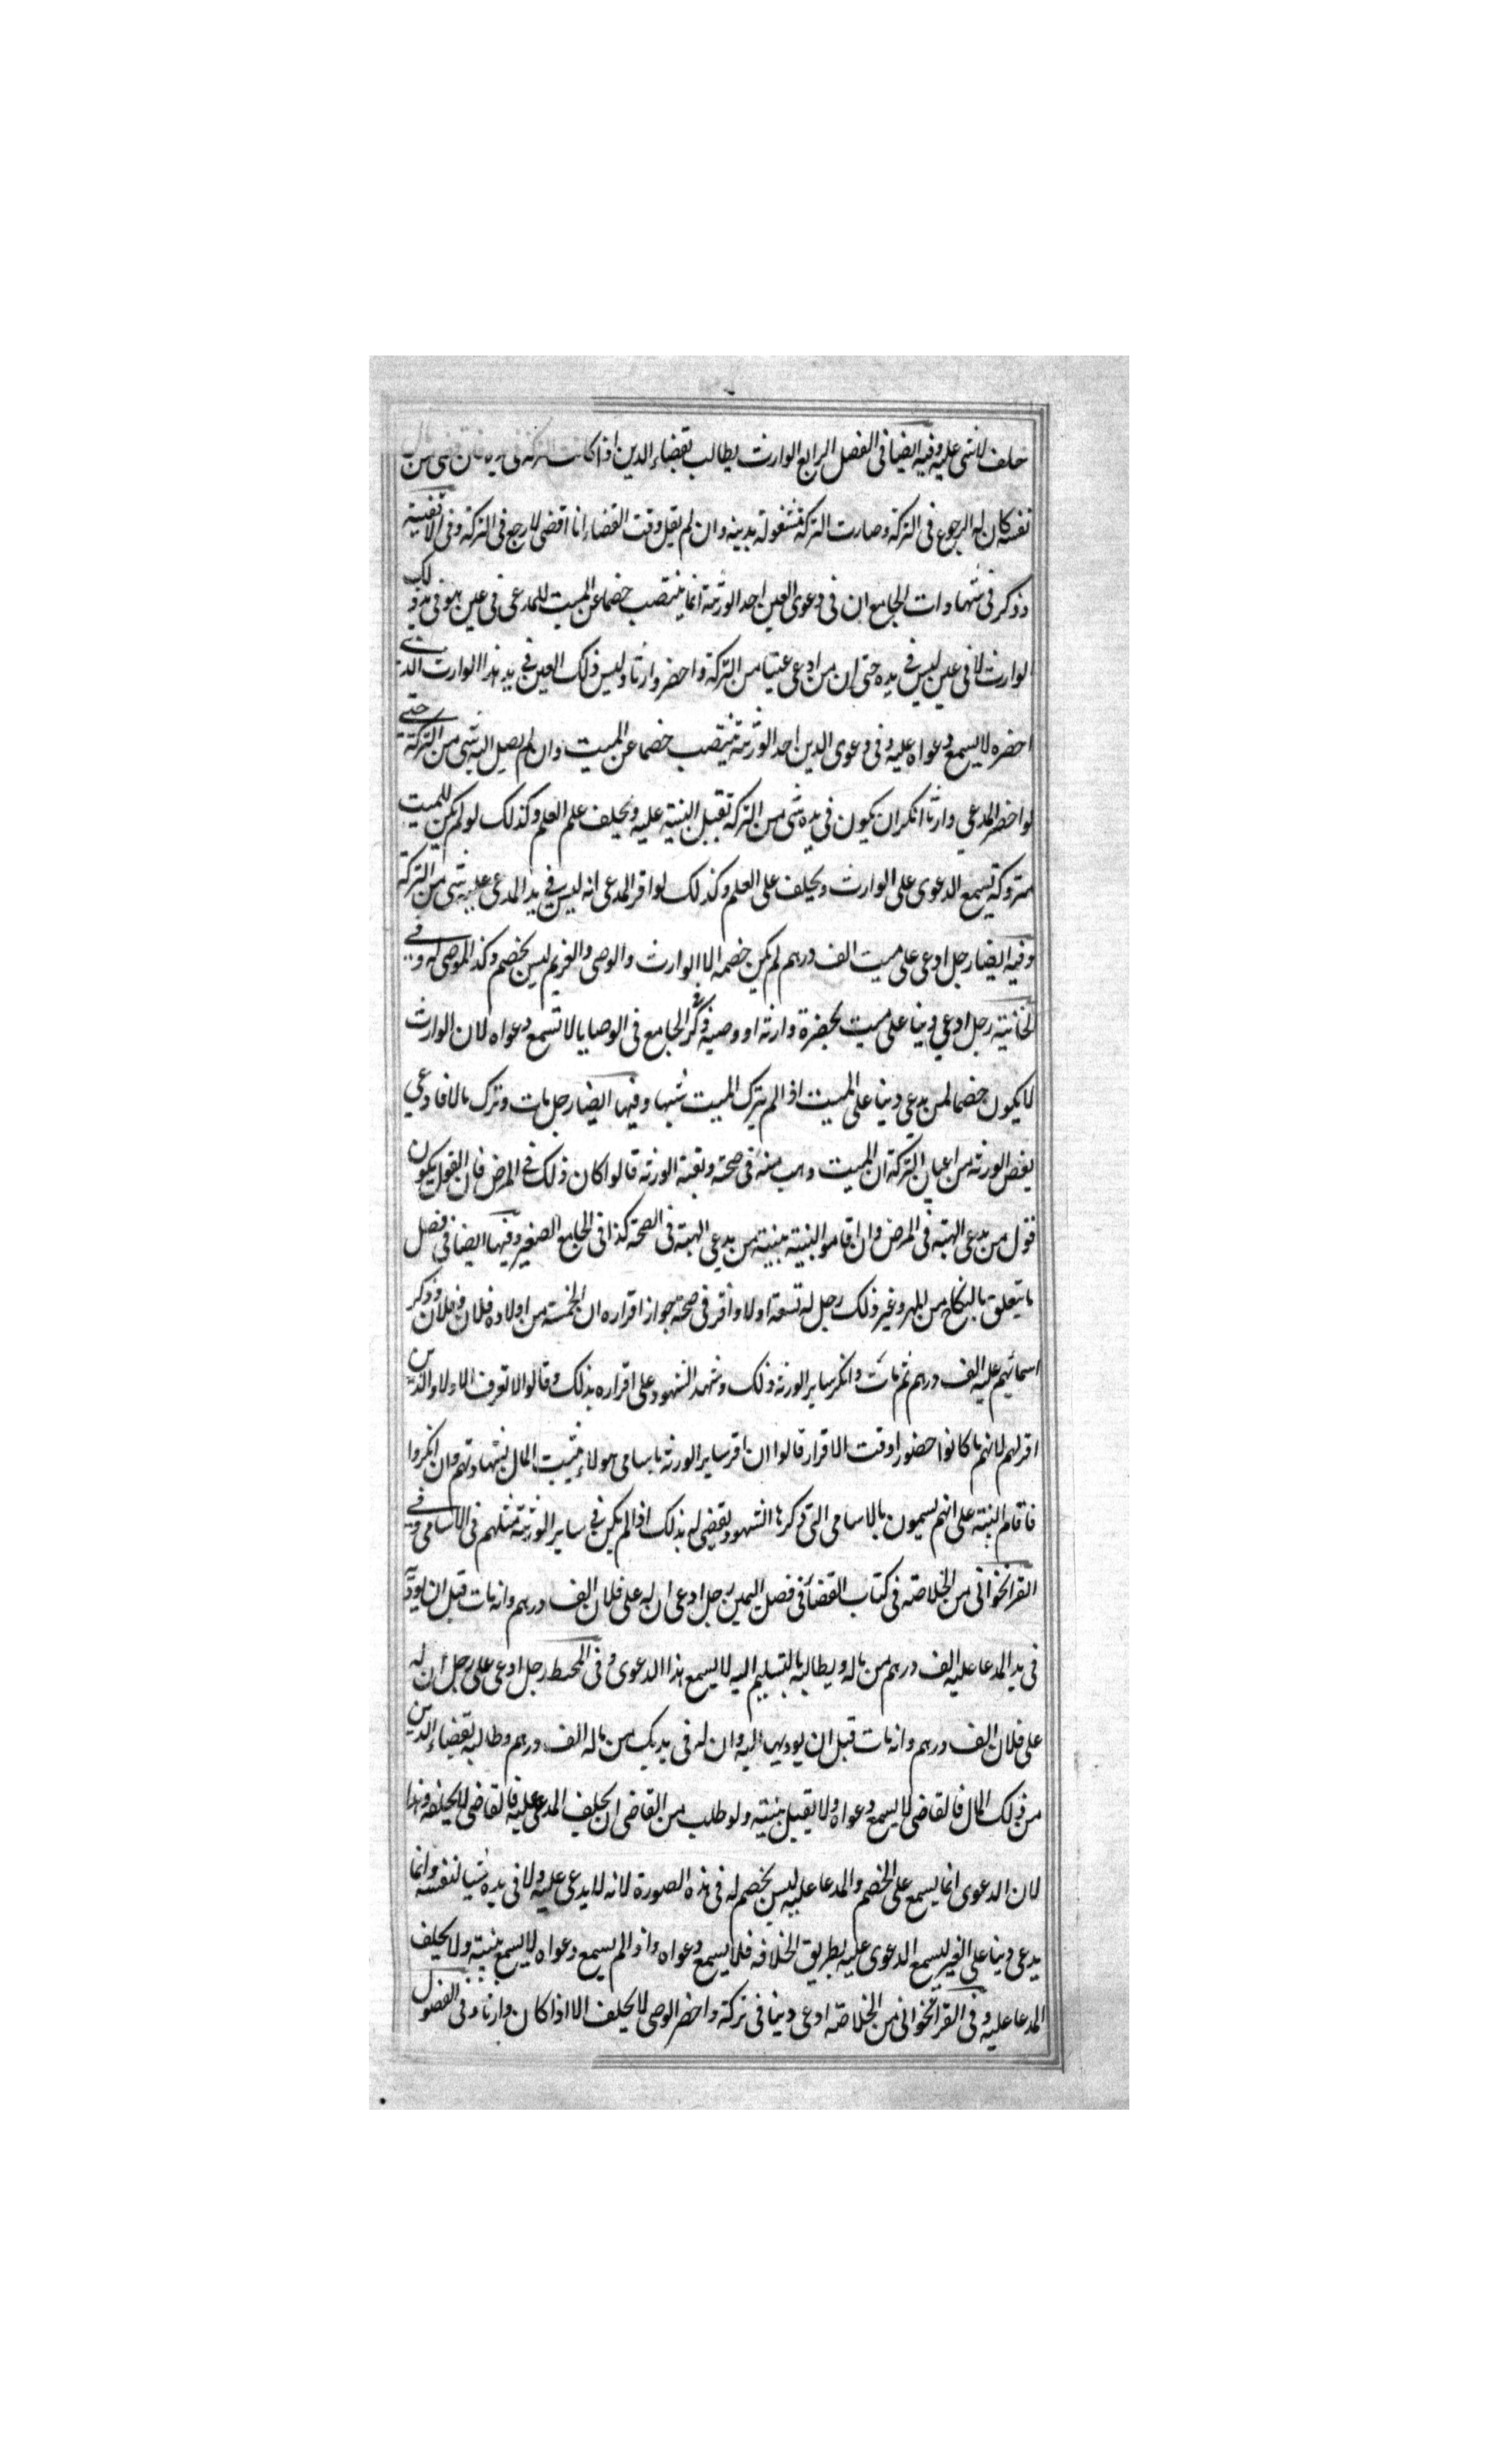 خلف لا شى عليه وفيه ايضا فى الفصل الرابع الوارث يطالب بقضاء الدين اذا كانت التركة فى يده فان قضى من مال
نفسه كان له الرجوع فى التركة وصارت التركة مشغولة بدينه وان لم يقل وقت القضاء انا اقضى لارجع فى التركة وفى الاقضية
وذكر فى شهادات الجامع ان فى دعوى العين احد الورثة انما ينتصب خصما عن الميت للمدعى فى عين هو فى يد ذلك
الوارث لا فى عين ليس فى يده حتى ان من ادعى عينا من التركة واحضر وارثا وليس ذلك العين فى يد هذا الوارث الذى
احضره لا يسمع دعواه عليه وفى دعوى الدين احد الورثة ينتصب خصما عن الميت وان لم يصل اليه شى من التركة حتى
لو احضر المدعي وارثا انكر ان يكون فى يده شى من التركة تقبل البينة عليه ويحلف علم العلم وكذلك لو لم يكن للميت
متروكة يسمع الدعوى على الوارث ويحلف على العلم وكذلك لو اقر المدعى انه ليس فى يد المدعى عليه شى من التركة
وفيه ايضا رجل ادعى على ميت الف درهم لم يكن خصمه الا الوارث والوصى والغريم ليس بخصم وكذا الموصى له وفى
الخانية رجل ادعي دينا على ميت بحضرة وارثه او وصيه ذكر فى الجامع فى الوصايا لا تسمع دعواه لان الوارث
لا يكون خصما لمن يدعي دينا على الميت اذا لم يترك الميت شيها وفيها ايضا رجل مات وترك مالا فادعي
بعض الورثه من اعيان التركة ان الميت وهب منه فى صحته وبقية الورثه قالوا كان ذلك فى المرض فان القول يكون
قول من يدعى الهبة فى المرض وان اقاموا البينة بينة من يدعي الهبة فى الصحة كذا فى الجامع الصغير وفيها ايضا فى فصل
ما يتعلق بالنكاح من المهر وغير ذلك رجل له تسعة اولاد واقر فى صحة جواز اقراره ان لخمسة من اولاده فلان وفلان وذكر
اسمائهم عليه الف درهم ثم مات وانكر ساير الورثه ذلك وشهد الشهود على اقراره بذلك وقالوا لا نعرف الاولاد الذين
اقر لهم لانهم ما كانوا حضورا وقت الاقرار قالوا ان اقر ساير الورثه باسامى هولاء يثبت المال بشهادتهم وان انكروا
فاقام البينة على انهم يسمون بالاسامى التى ذكرها الشهود يقضى له بذلك اذا لم يكن فى ساير الورثة مثلهم فى الاسامى وفى
القراخوانى من الخلاصة فى كتاب القضا فى فصل اليمين رجل ادعى ان له على فلان الف درهم وانه مات قبل ان يوديه
فى يد المدعا عليه الف درهم من ماله ويطالبه بالتسليم اليه لا يسمع هذا الدعوى وفى المحيط رجل ادعى على رجل ان له
على فلان الف درهم وانه مات قبل ان يوديها اليه وان له فى يديك من ماله الف درهم وطالبه بقضاء الدين
من ذلك المال فالقاضى لا يسمع دعواه ولا يقبل بينته ولو طلب من القاضى ان يحلف المدعى عليه فالقاضى لا يحلفه وهذا
لان الدعوى انما يسمع على الخصم والمدعا عليه ليس بخصم له فى هذه الصورة لانه لا يدعى عليه ولا فى يده شيا لنفسه وانما
يدعى دينا على الغير ليسمع الدعوى عليه بطريق الخلافه فلا يسمع دعواه واذا لم يسمع دعواه لا يسمع بينته ولا يحلف
المدعا عليه وفى القراخوانى من الخلاصة ادعى دينا فى تركة واحضر الوصى لا يحلف الا اذا كان وارثا وفى الفصول